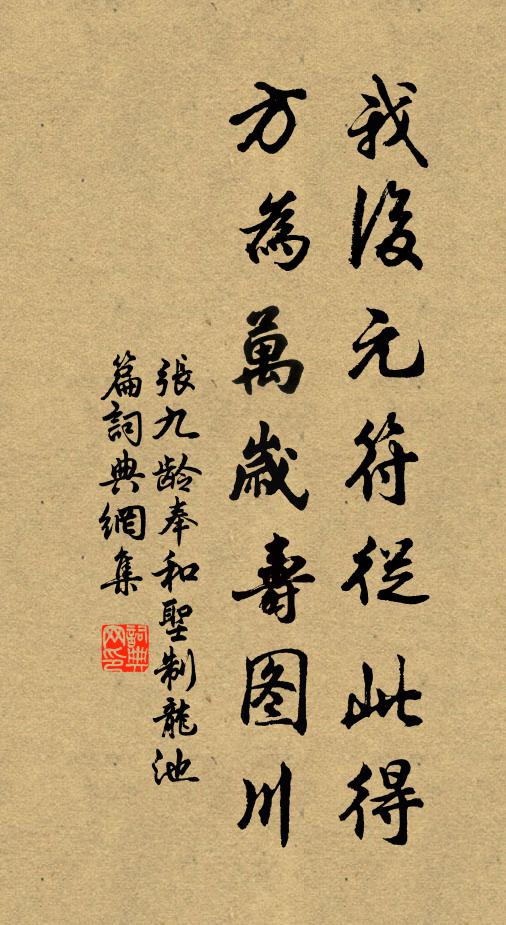 我後元符從此得
方為萬歲壽图川
張九齡奉和聖制龍池
篇詞典網集
詞典
网印